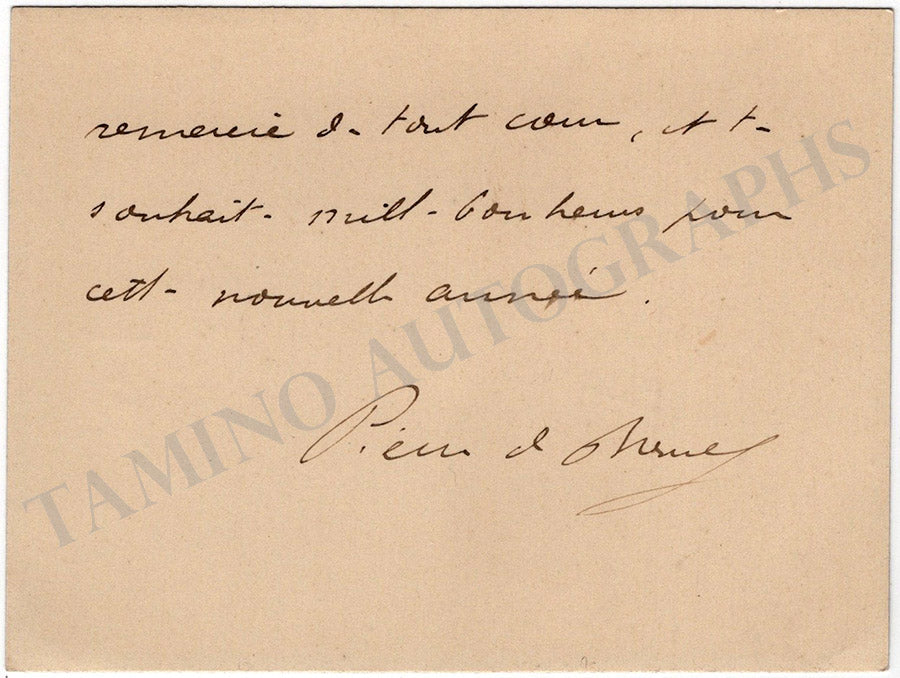 remercie de tout cœur, et te
souhaite mille bonheurs pour
cette nouvelle année.
Pierre de
TAMINO AUTOGRAPHS